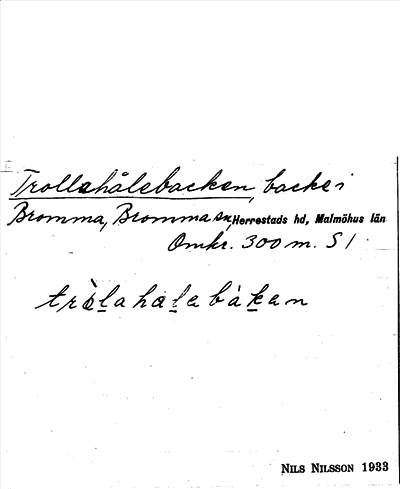 Trollahålebacken, backe i
Bromma, Bromma sn, Herrestads hd, Malmöhus län
Omkr. 300 m. S 1.
tròl̠ahal̠ebàk̠an
NILS NILSSON 1933